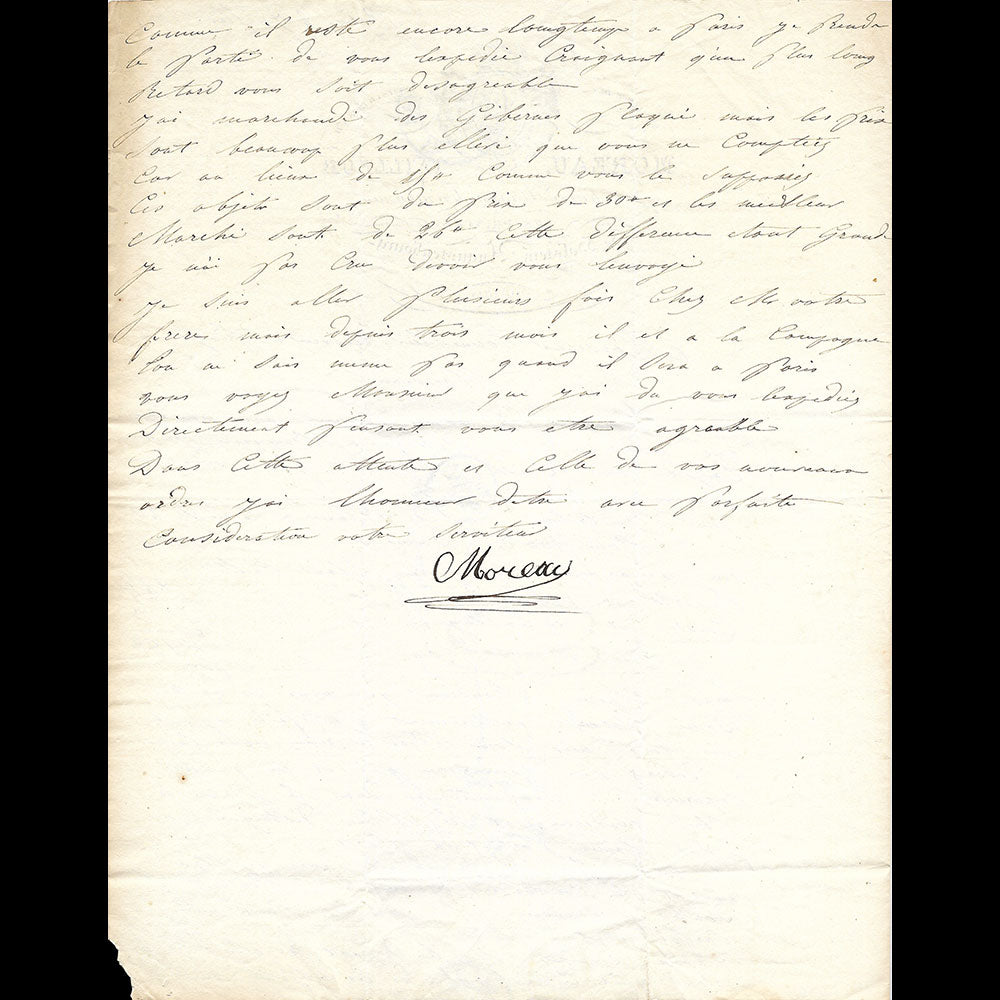 Comme il reste encore longtemp a Paris je Prend
le Parti de vous lexpedié Craignant qun Plus long
Retard vous soit desagreable
jai marchandé des Gibernes Plaqué mais les Prix
sont beaucoup Plus ellevé que vous ne Comptiez
Car au lieux de Comme vous le Supposiez
Ces objets sont du Prix de 30# et les meilleur
Marché sont de 26# Cette difference etant Grande
je nai Pas Cru devoir vous lenvoyé
je suis aller Plusieurs fois Chez Mr votre
frere mais depuis trois mois il et a la Campagne
lon ni sais meme Pas quand il sera a Paris
vous voyez Monsieur que jai du vous lexpediez
Directement Pensant vous etre agreable
Dans Cette attente et Celle de vos nouveaux
ordre jai lhonneur detre avec Parfaite
Consideration votre Serviteur
Moreau
MOREAU TAILLEUR